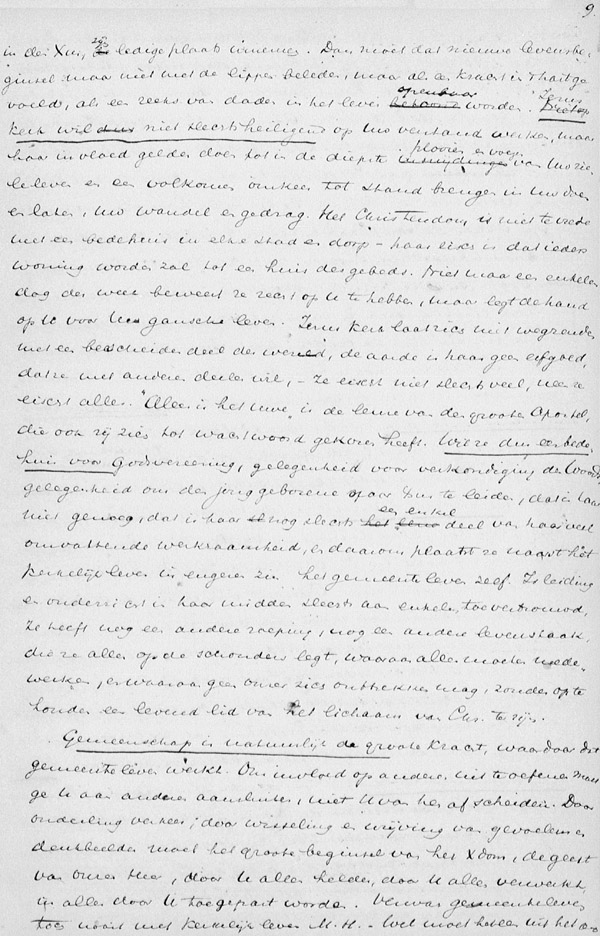 9.
in des Xus, ledige plaats innemen. Dan moet dat nieuwe levensbe-
ginsel maar niet met de lippen beleden, maar als een kracht in 't hart ge
voeld, als een reeks van daden in het leven openbaar worden. Jezus
kerk wil niet slechts heiligend op Uw verstand werken, maar
haar invloed gelden doen tot in de diepste plooien en voegen van Uw zie-
leleven en een volkomen omkeer tot stand brengen in Uw doen
en laten, Uw wandel en gedrag. Het Christendom is niet tevreden
met een bedehuis in elke stad en dorp – haar eisch is dat ieders
woning worden zal tot een huis des gebeds. Niet maar een enkelen
dag der week beweert ze recht op U te hebben, maar legt de hand
op U voor Uw gansche leven. Jezus kerk laat zich niet wegzenden
met een bescheiden deel der wereld, de aarde is haar geen erfgoed,
dat ze met anderen deelen wil, – ze eischt niet slechts veel, neen ze
eischt alles. "Alles is het Uwe" is de leuze van den grooten Apostel,
die ook zij zich tot wachtwoord gekozen heeft. Wil ze dus een bede-
huis voor Godsvereering, gelegenheid voor verkondiging des Woords
gelegenheid om den jong geborene door te leiden, dat is haar
niet genoeg, dat is haar nog slechts een enkel deel van haar veel
omvattende werkzaamheid, en daarom plaatst ze naast het
kerkelijk leven in engeren zin het gemeenteleven zelf. Is leiding
en onderricht in haar midden slechts aan enkelen toevertrouwd,
Ze heeft nog een andere roeping, nog een andere levenstaak,
die ze allen op de schouders legt, waaraan allen moeten mede-
werken, en waaraan geen onzer zich onttrekken mag, zonder op te
houden een levend lid van het lichaam van Chr. te zijn.
Gemeenschap is natuurlijk de groote kracht, waardoor dit
gemeenteleven werkt. Om invloed op anderen uit te oefenen moet
ge U aan anderen aansluiten, niet U van hen afscheiden. Door
onderling verkeer, door wisseling en wrijving van gevoelens en
denkbeelden moet het groote beginsel van het Xdom, de geest
van onzen Heer, door U allen helder, door U allen verwerkt,
in allen door U toegepast worden. Van gemeenteleven
naast met kerkelijk leven M. H. – Wel moet het uit het